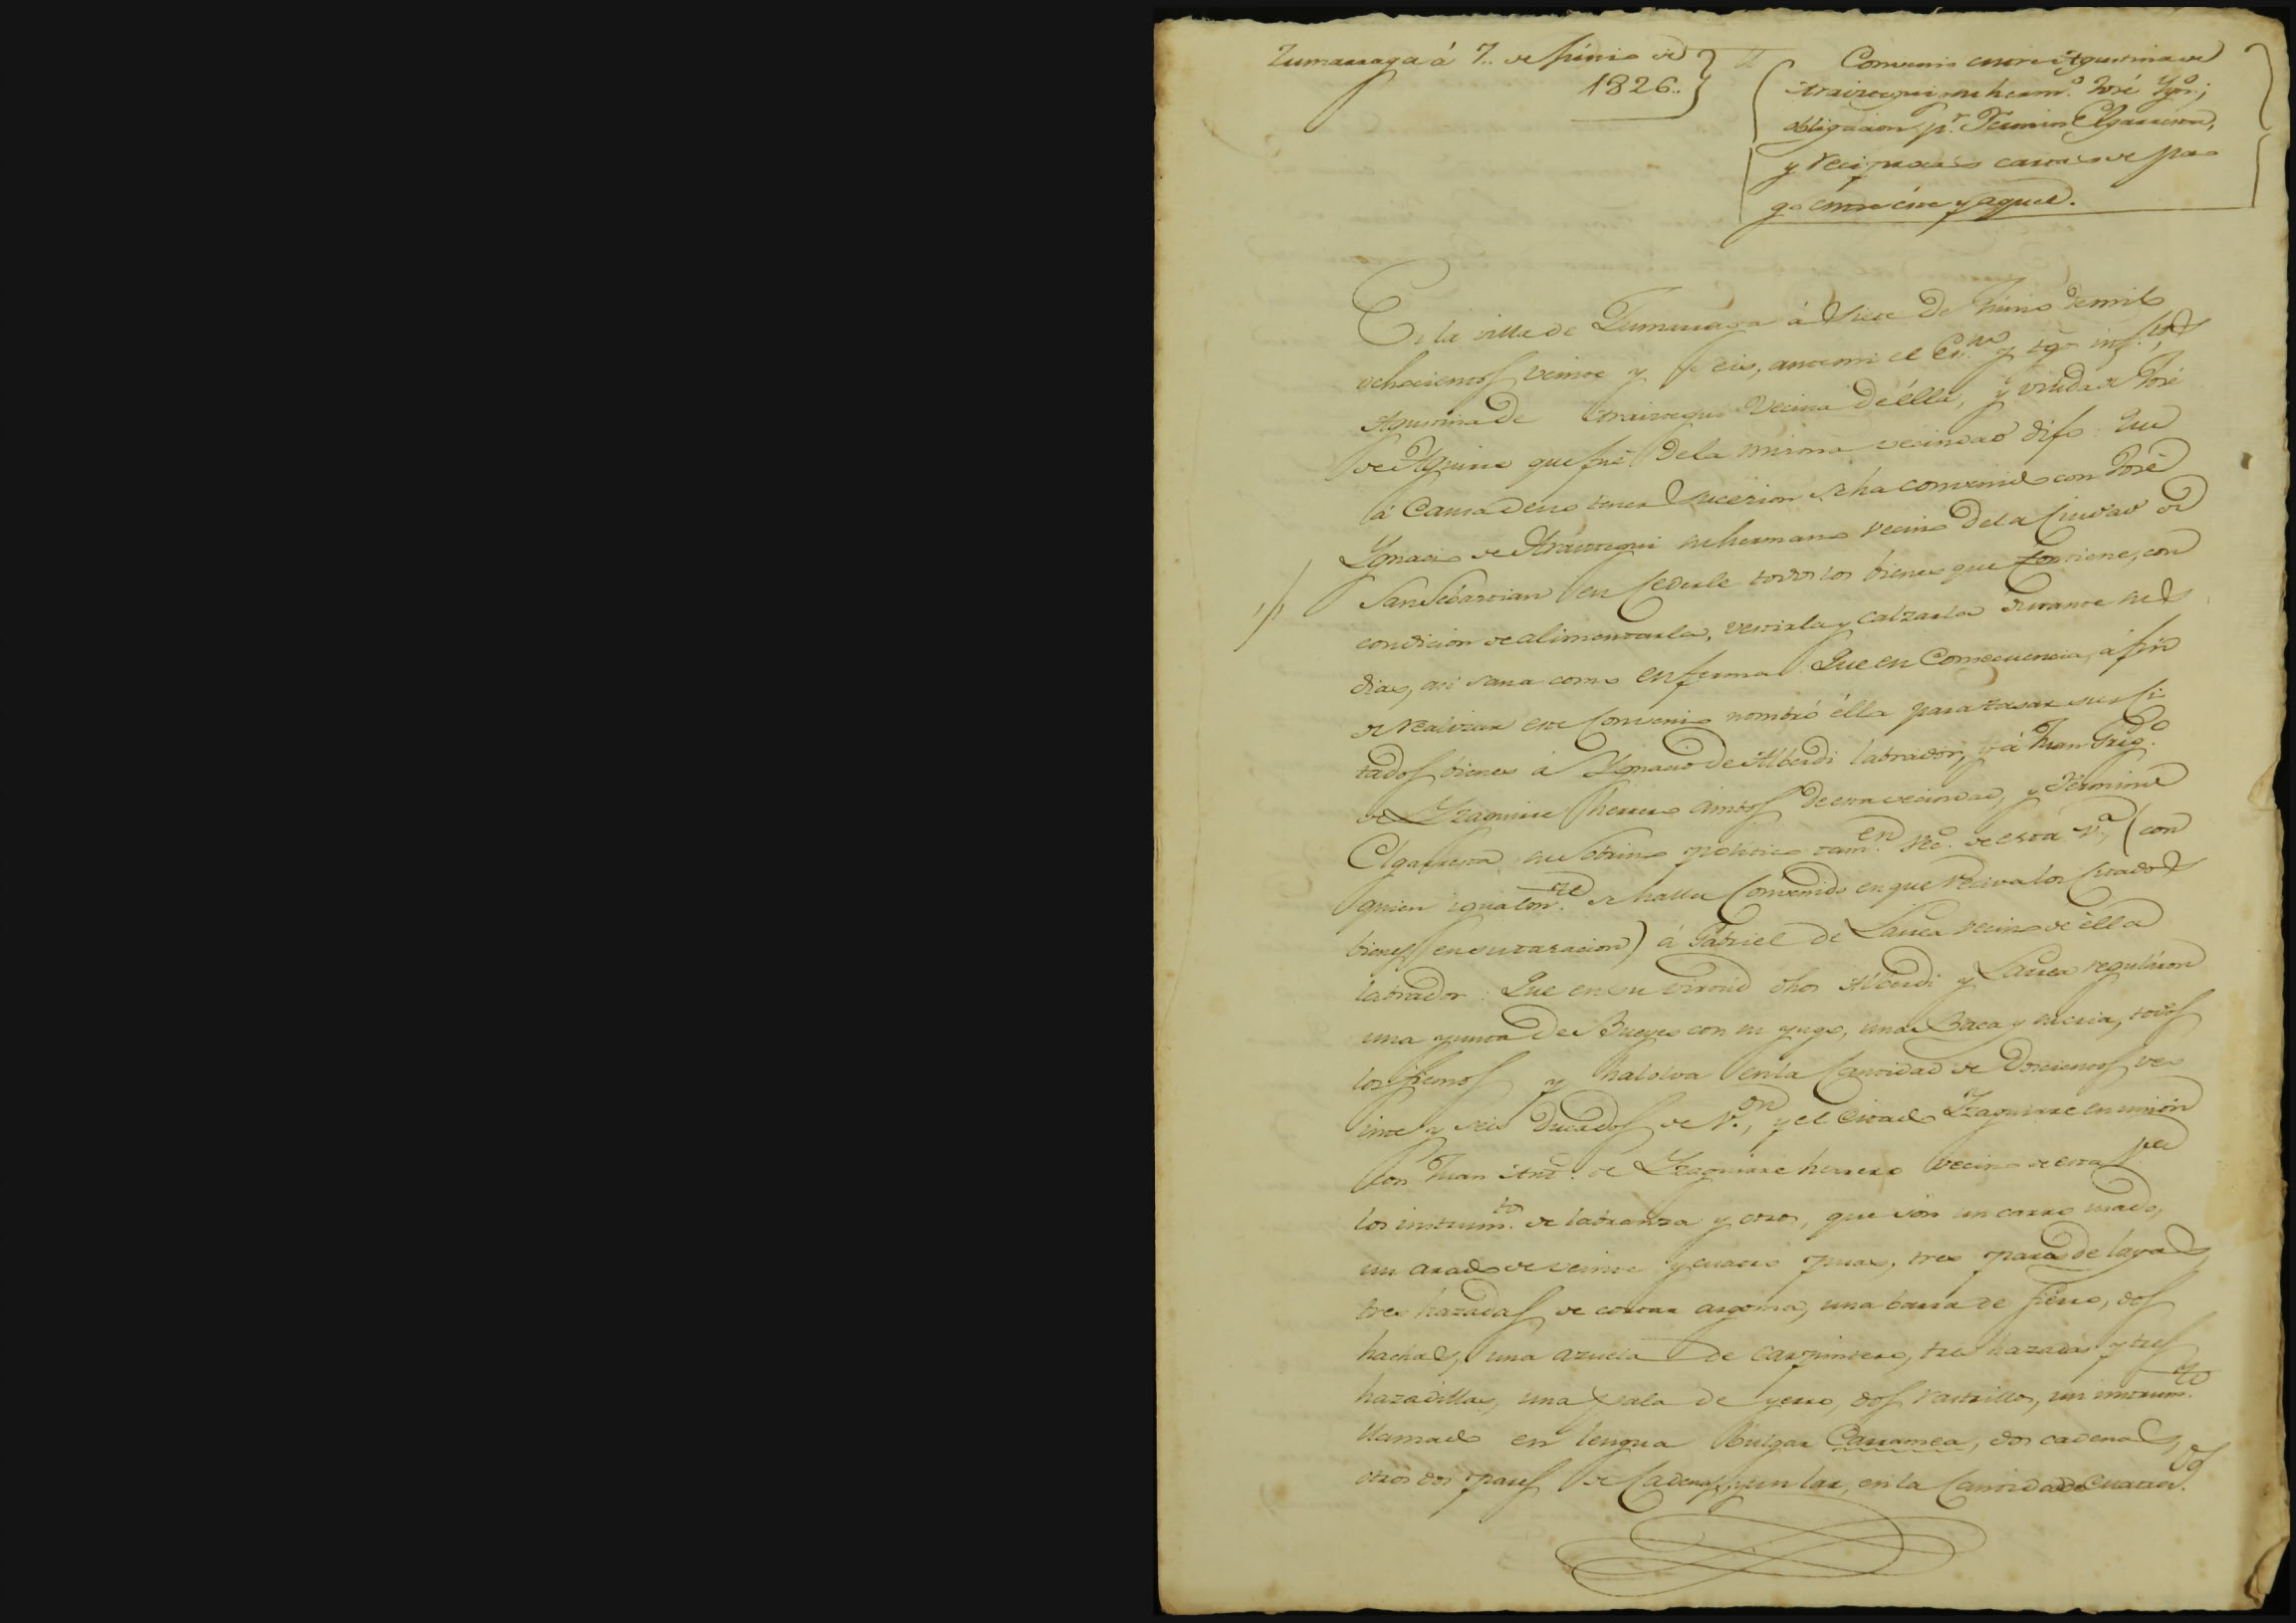 Zumarraga á 7.. de Junio de
1826..
Convenio entre Agustina de
Araiztegui su herm.º José Ygn.º;
obligacion p.r Fermin Elgarresta,
y reciprocas cartas de pa
go entre éste y aquel.
En la villa de Zumarraga á siete de Junio de mil
ochocientos veinte y seis, ante mi el Es.no y tgos inf.tos
Agustina de Araiztegui vecina de élla, y viuda de José
de Aguirre que fué de la misma vecindad dijo: Que
á causa de no tener sucesion se ha convenido con José
Ygnacio de Arauztegui su hermano vecino de la Ciudad de
San Sebastian en cederle todos los bienes que tiene, con
condicion de alimentarla, vestirla y calzarla durante sus
dias, asi sana como enferma. Que en consecuencia, á fin
de realizar este convenio nombró élla para tasar sus ci
tados bienes á Ygnacio de Alberdi labrador, y á Juan Greg.º
de Yzaguirre herrero ambos de esta vecindad, y Fermin
Elgarresta su sobrino politico tam.en vec.º de esta v.a, (con
quien igualm.te se halla convenido en que reciva los citados
bienes en su tasacion) á Gabriel de Laurea vecino de élla
labrador: Que en su virtud dhos Alberdi y Laurea regularon
una yunta de Bueyes con su yugo, una Baca y su cria, todos
los fiemos y halolva en la cantidad de doscientos ve
inte y seis Ducados de v.on, y el citado Yzaguirre en unión
con Juan Ant.º de Yzaguirre herrero vecino de esta v.a
los instrum.tos de labranza y otros, que són un carro usado,
un arado de veinte y cuatro puas, tres pares de layas,
tres hazadas de cortar argoma, una barra de fierro, dos
hachas, una azuela de carpintero, tres hazadas y tres
hazadillas, una pala de yerro, dos rastrillos, un instrum.to
llamado en lengua Bulgar Carramea, dos cadenas,
otros dos pares de cadenas, y un lar, en la cantidad de cuaren.